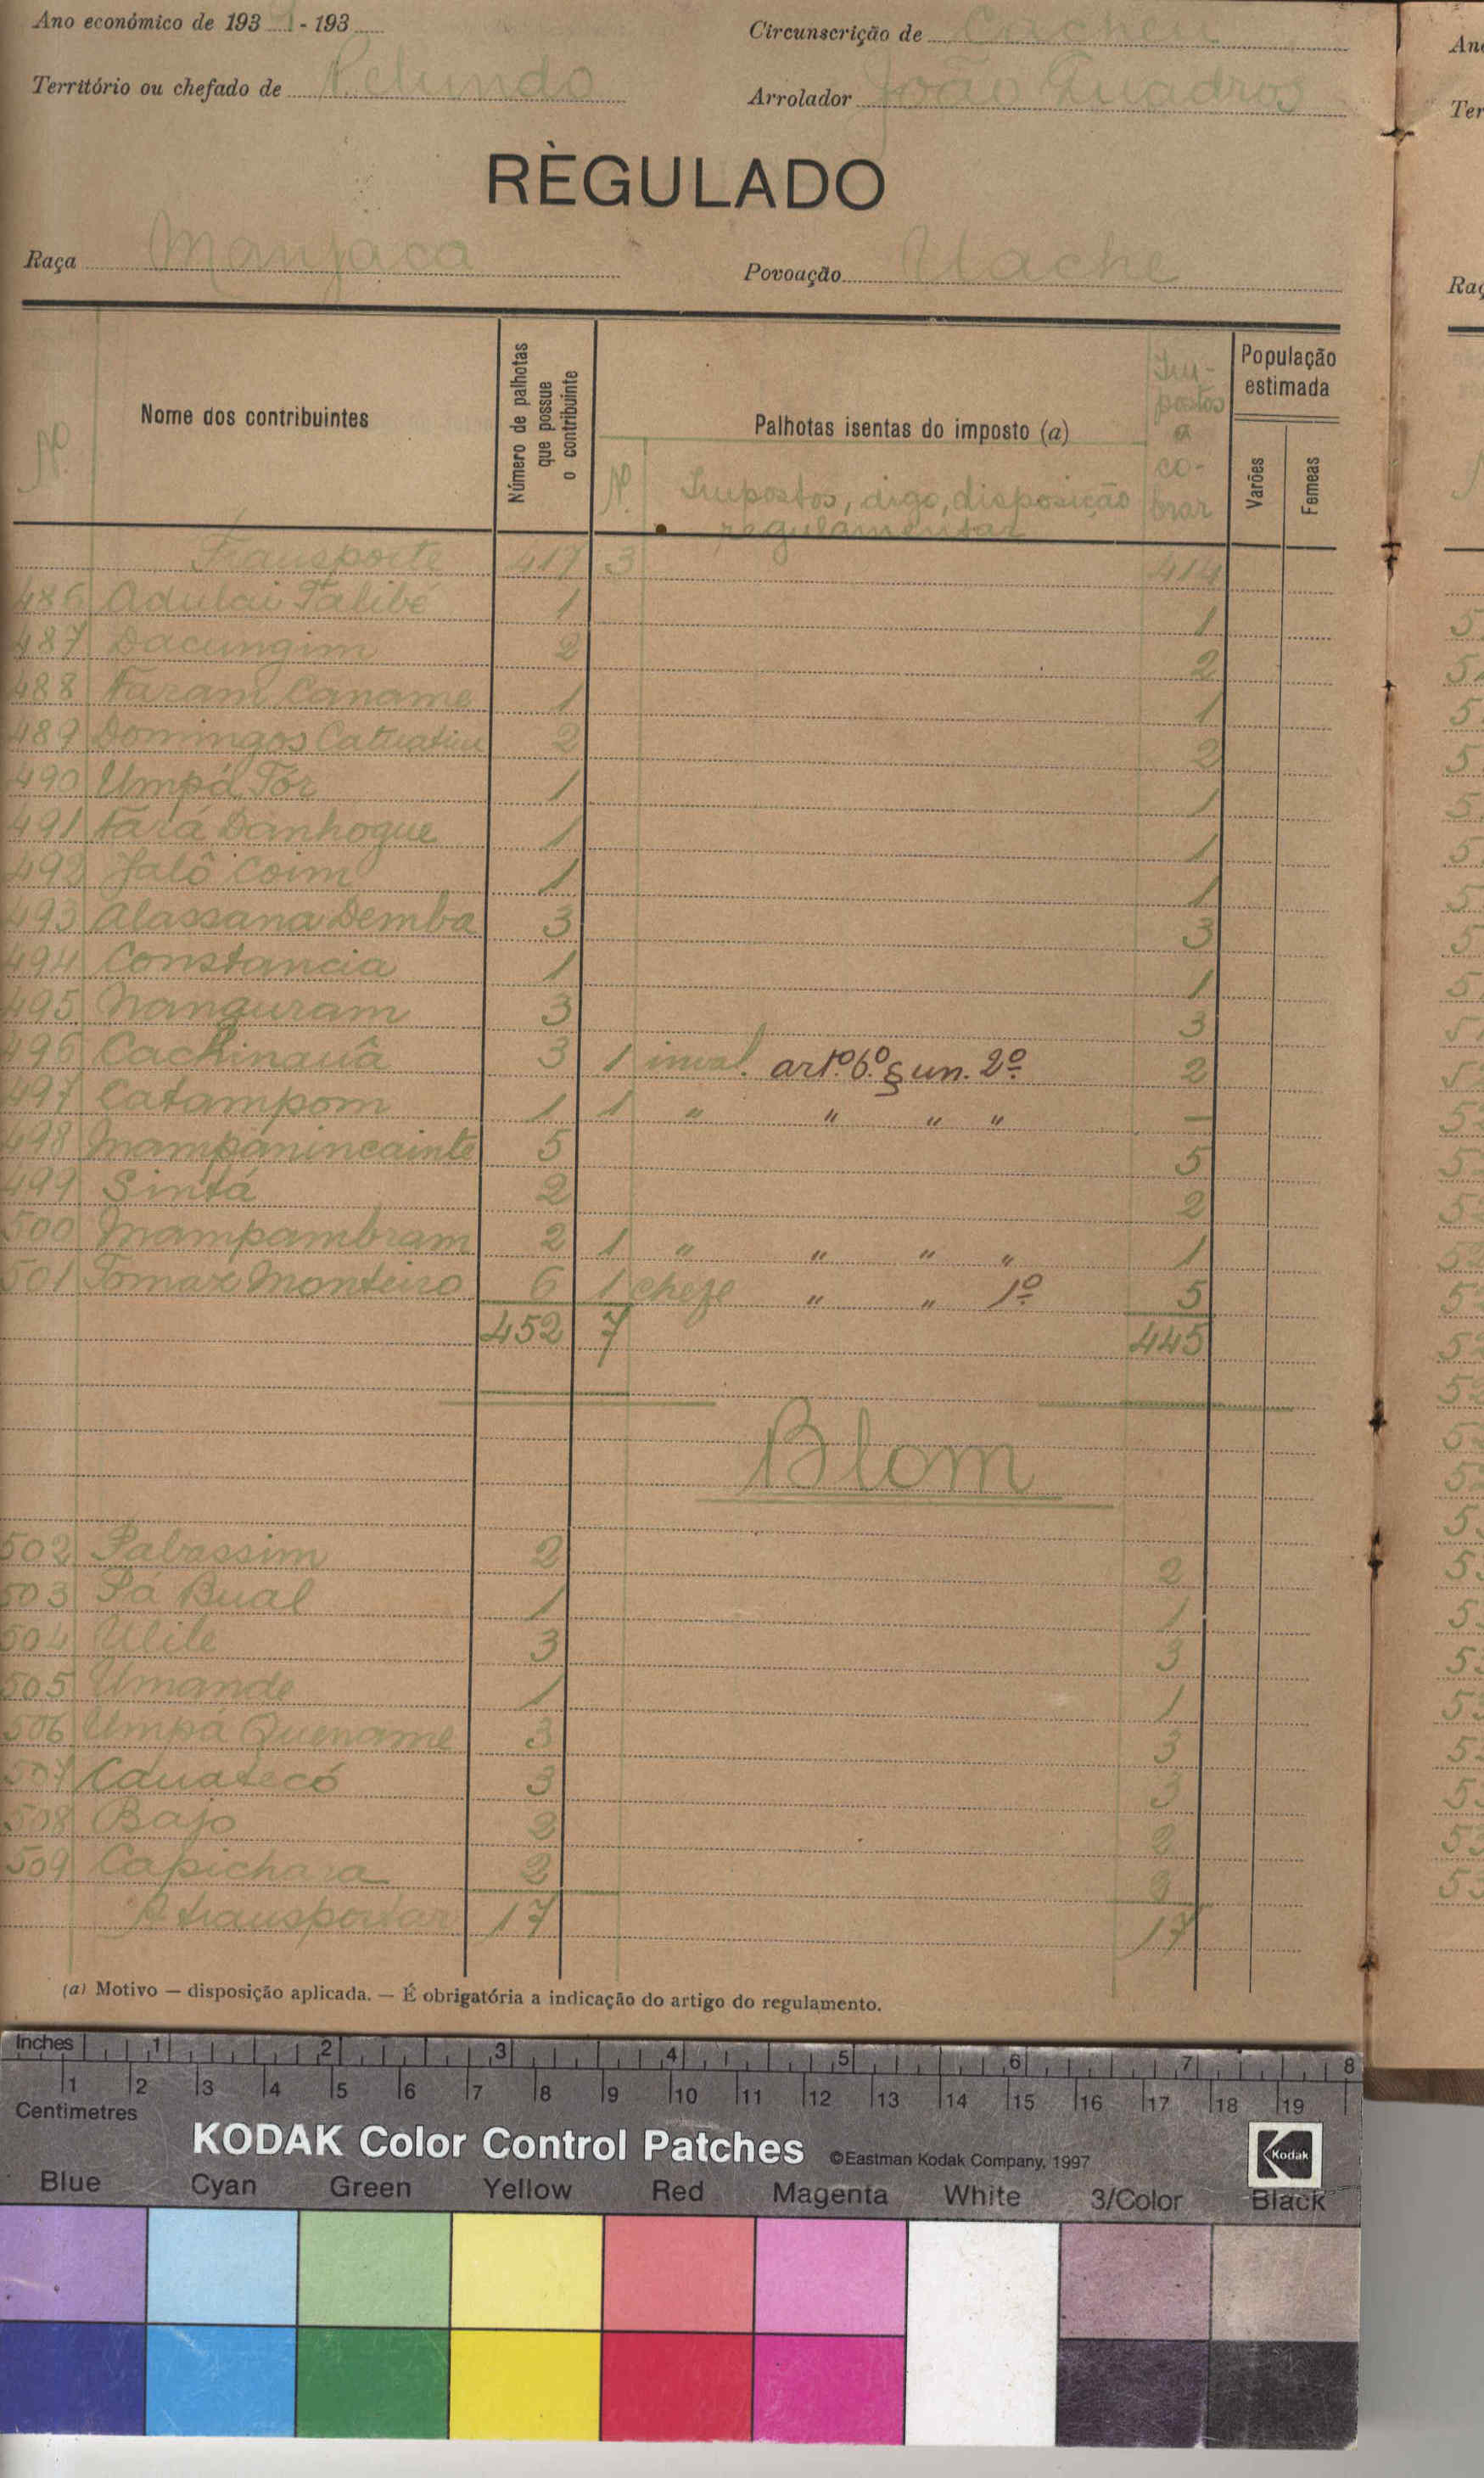 Ano económico de 193 1 - 193
Circunscrição de Cacheu
Território ou chefado de Pelundo
Arrolador João Quadros
RÈGULADO
Raça Manjaca
Povoação Utache
Nº
Nome dos contribuintes
Número de palhotas que possue o contribuinte
Palhotas isentas do imposto (a)
Nº Impostos, digo, disposição regulamentar
Impostos a cobrar
População estimada
Varões Femeas
Transporte 417 3 414
486 Adulai Talibé 1 1
487 Dacungim 2 2
488 Faram Caname 1 1
489 Domingos 2 2
490 Umpá Tór 1 1
491 Fará Danhogue 1 1
492 Jalô Coim 1 1
493 Alassana Demba 3 3
494 Constancia 1 1
495 Nanguram 3 3
496 Cachinauâ 3 1 inval. artº. 6º. § un. 2º 2
497 Catampom 1 1 " " " " —
498 Mampánincainte 5 5
499 Sintá 2 2
500 Mampambram 2 1 " " " " 1
501 Tomaz Monteiro 6 1 chefe " " 1º 5
452 7 445
Blom
502 Pabassim 2 2
503 Pá Bual 1 1
504 Ulile 3 3
505 Umande 1 1
506 Umpá Quename 3 3
507 Cauatecó 3 3
508 Bajo 2 2
509 Capichara 2 2
A transportar 17 17
(a) Motivo — disposição aplicada. — É obrigatória a indicação do artigo do regulamento.
Inches 1 2 3 4 5 6 7 8
1 2 3 4 5 6 7 8 9 10 11 12 13 14 15 16 17 18 19
Centimetres
KODAK Color Control Patches ©Eastman Kodak Company, 1997 Kodak
Blue Cyan Green Yellow Red Magenta White 3/Color Black